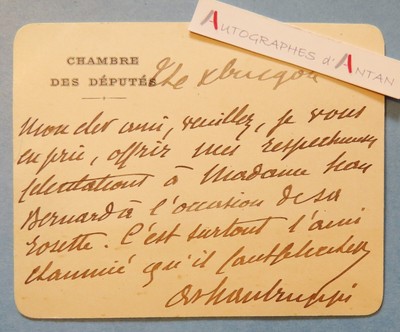 AUTOGRAPHES d'ANTAN
CHAMBRE
DES DÉPUTÉS
Mon cher ami, veuillez, je vous
en prie, offrir mes respectueuses
félicitations à Madame Jean
Bernard à l'occasion de sa
rosette. C'est surtout l'ami
qu'il faut féliciter